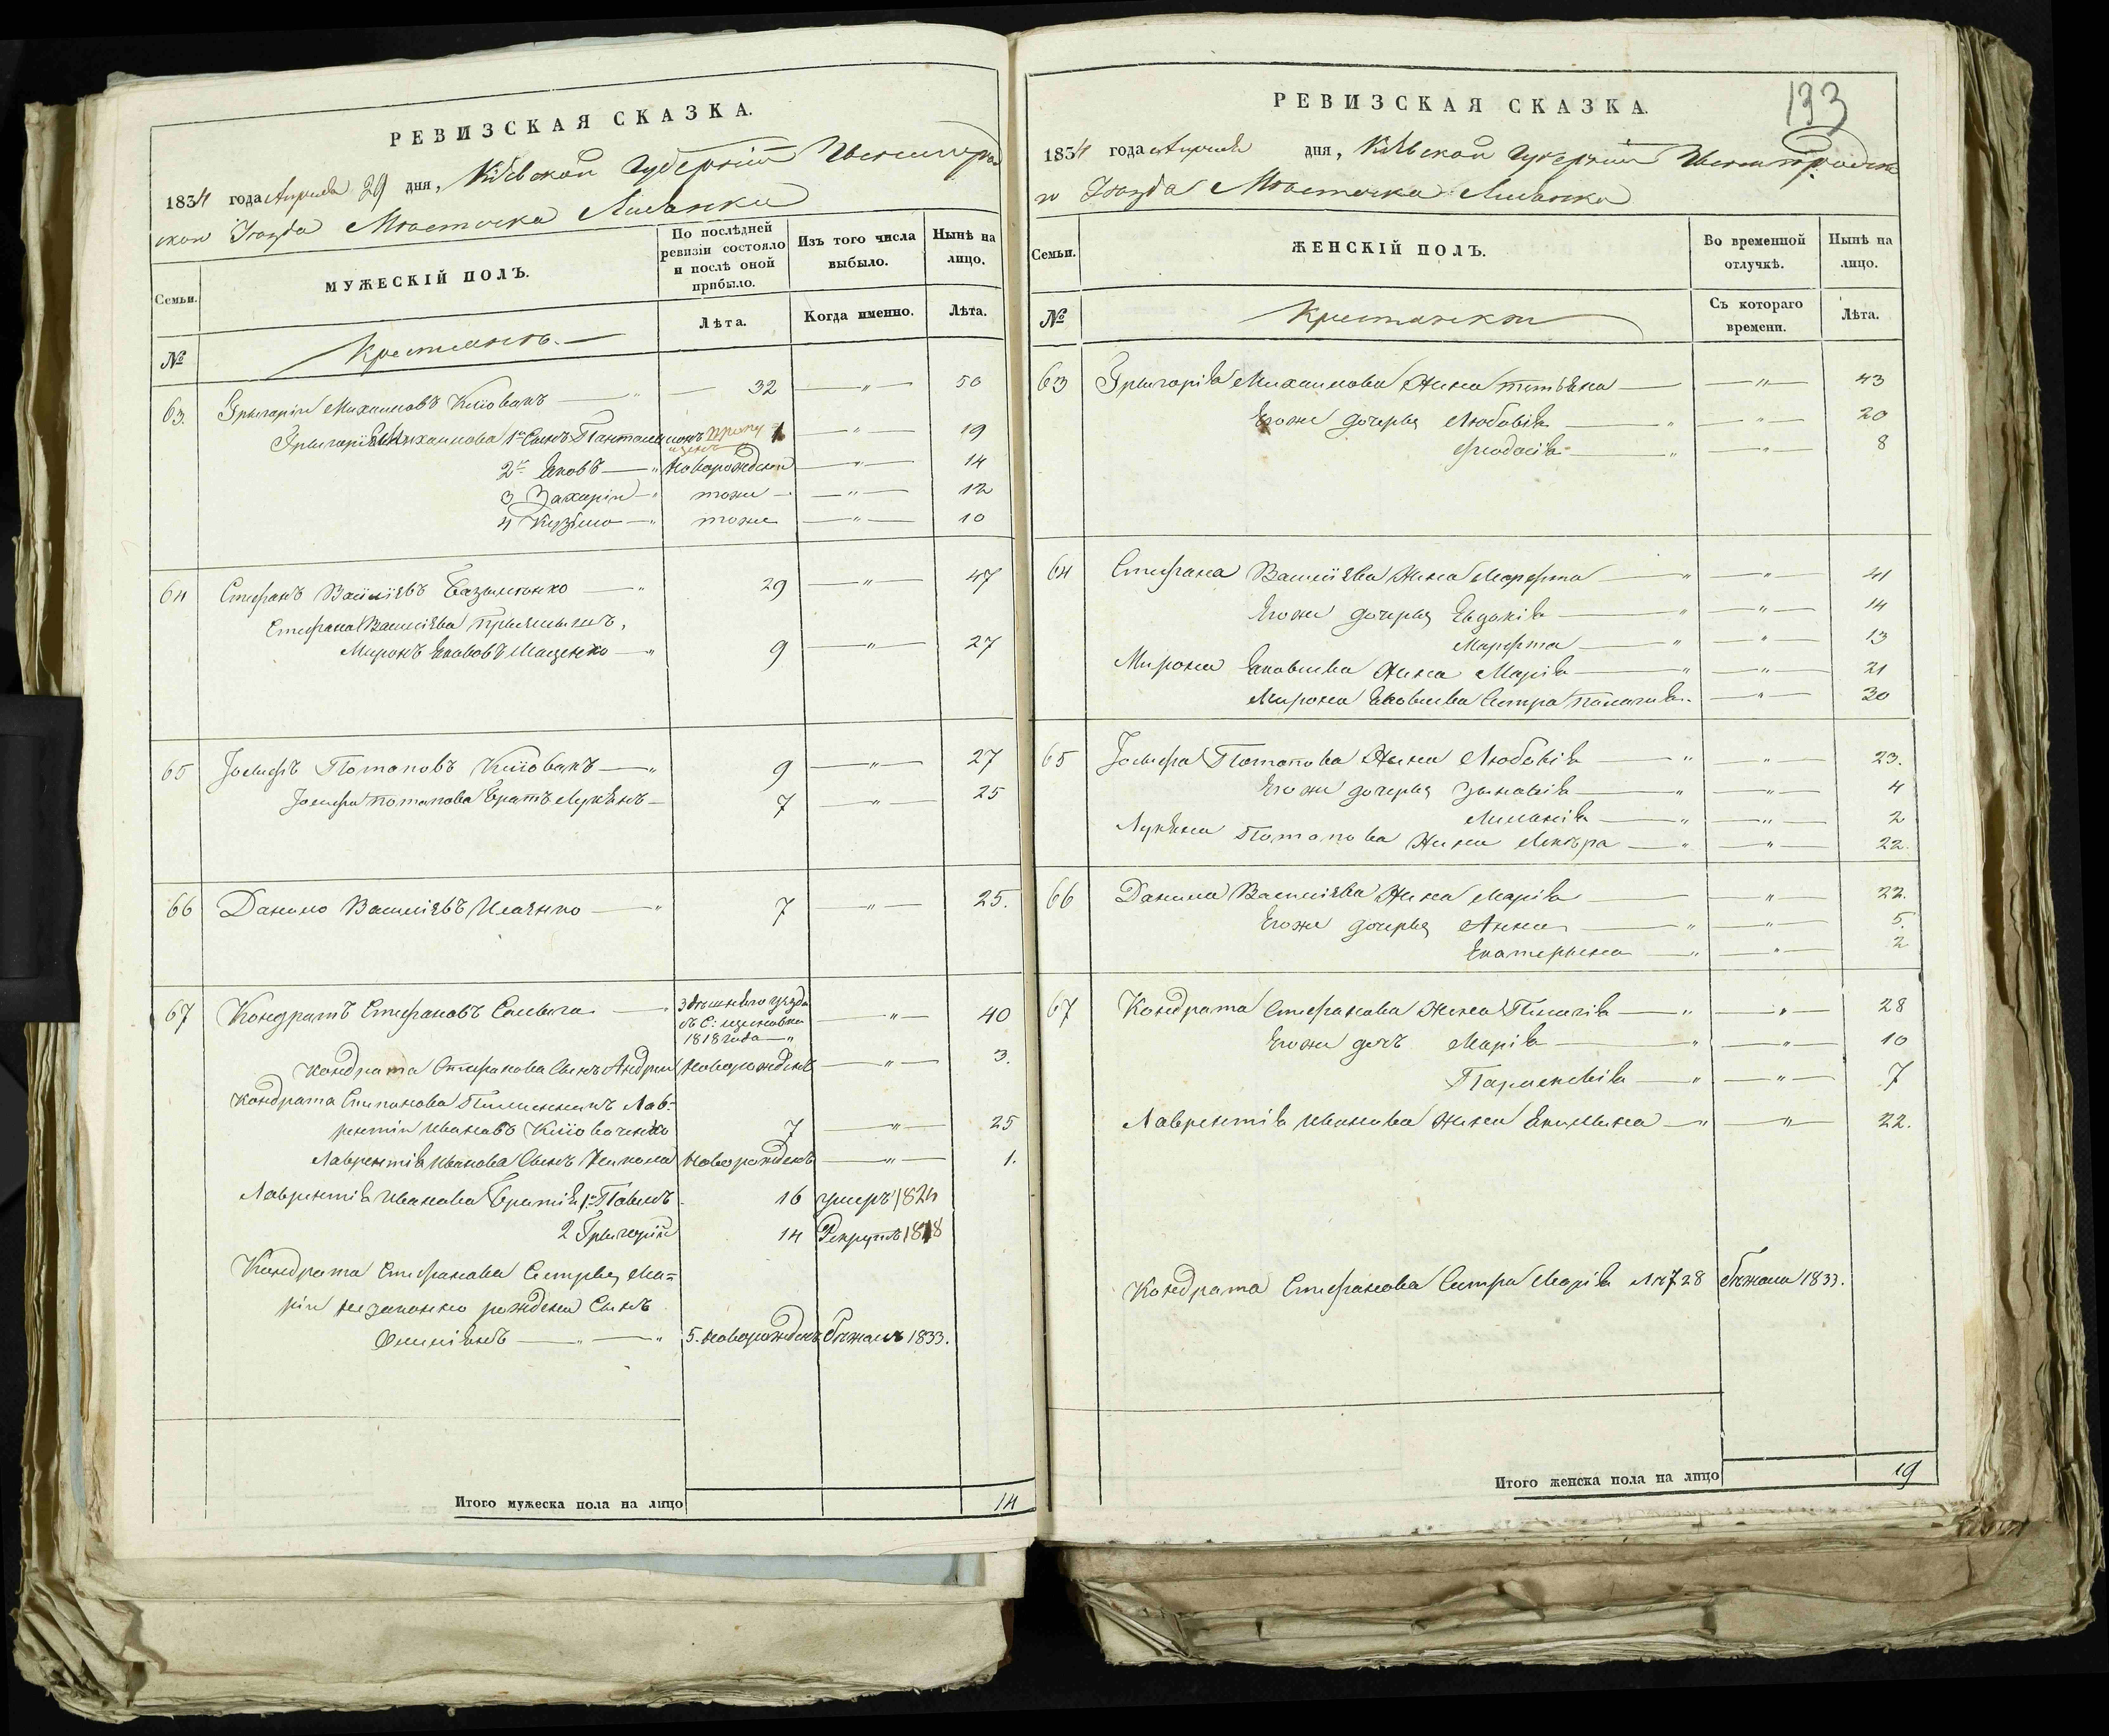 РЕВИЗСКАЯ СКАЗКА.
1834 года Апреля 29 дня, Кіевской Губерніи Звенигород
скаго Уезда Местечка Лисянки
Семьи.
МУЖЕСКІЙ ПОЛЪ.
По послѣдней ревизіи состояло и послѣ оной прибыло.
Изъ того числа выбыло.
Нынѣ на лицо.
№
Крестьянъ.
Лѣта.
Когда именно.
Лѣта.
63. Григорій Михаиловъ Кліовакъ 32 — " — 50
Григорія Михаилова 1й Сынъ Пантелимонъ 1 — " — 19
2й Яковъ — " Новорожденъ — " — 14
3 Захарій — " тоже — " — 12
4 Кузьмо — " тоже — " — 10
64 Стефанъ Василіевъ Базиленко — " 29 — " — 47
Стефана Василіева
Миронъ Яковлевъ Маценко — " 9 — " — 27
65 Іосифъ Потаповъ Кліовакъ — " 9 — " — 27
Іосифа Потапова Братъ Лукянъ — 7 — " — 25
66 Данило Василіевъ — " 7 — " — 25.
67 Кондратъ Стефановъ — " Здешняго уезда
1818 года — " — " — 40
Кондрата Стефанова Сынъ Андрей Новорожденъ — " — 3.
Кондрата Стефанова Племянникъ Лав-
рентій Ивановъ Кліоваченко 7 — " — 25
Лаврентія Иванова Сынъ Никола Новорожденъ — " — 1.
Лаврентія Иванова Братія 1й Павелъ 16 умеръ 1824
2 Григорій 14 Рекрутъ 1818
Кондрата Стефанова Сестры Ма-
ріи незаконно рожденъ Сынъ
— " — " 5. Новорожденъ бежалъ 1833.
Итого мужеска пола на лицо 14
133
РЕВИЗСКАЯ СКАЗКА.
1834 года Апреля дня, Кіевской Губерніи Звенигородска
го Уезда Местечка Лисянки
Семьи.
ЖЕНСКІЙ ПОЛЪ.
Во временной отлучкѣ.
Нынѣ на лицо.
№
Крестьянки
Съ котораго времени.
Лѣта.
63 Григорія Михаилова Жена Татьяна — — " — 43
Егоже дочеры Любовія — " — " — 20
Феодосія — " — " — 8
64 Стефана Василіева Жена Марфта — " — " — 41
Егоже дочеры Евдокія — " — " — 14
Марфта — " — " — 13
Мирона Яковлева Жена Марія — " — " — 21
Мирона Яковлева Сестра Пелагія — " — 30
65 Іосифа Потапова Жена Любовія — " — " — 23.
Егоже дочеры Зиновія — " — " — 4
Меланія — " — " — 2
Лукяна Потапова Жена — " — " — 22.
66 Данила Василіева Жена Марія — — " — 22.
Егоже дочеры Анна — " — " — 5.
Екатерина — " — " — 2
67 Кондрата Стефанова Жена Пелагія — " — " — 28
Егоже дочь Марія — " — " — 10
Параскевія — " — " — 7
Лаврентія Иванова Жена Екилина — " — " — 22.
Кондрата Стефанова Сестра Марія лет 28 бежала 1833.
Итого женска пола на лицо 19